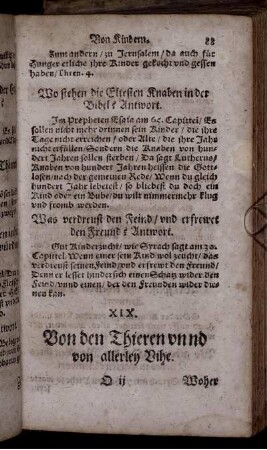 Von Kindern. 88
Zum andern/ zu Jerusalem/ da auch für
Hunger etliche ihre Kinder gekocht vnd gessen
haben/ Thren. 4.
Wo stehen die Eltesten Knaben in der
Bibel? Antwort.
Im Propheten Esaia am 65. Capittel/ Es
sollen nicht mehr drinnen sein Kinder/ die ihre
Tage nicht erreichen/ oder Alte/ die ihre Jahr
nicht erfüllen/ Sondern die Knaben von hun-
dert Jahren sollen sterben/ Da sagt Lutherus/
Knaben von hundert Jahren heissen die Gott-
losen/ nach der gemeinen Rede/ Wenn du gleich
hundert Jahr lebetest/ so bliebst du doch ein
Kind oder ein Bube/ du wilt nimmermehr klug
vnd fromb werden.
Was verdreust den Feind/ vnd erfrewet
den Freund? Antwort.
Gut Kinderzucht/ wie Syrach sagt am 30.
Capittel/ Wenn einer sein Kind wol zeucht/ das
verdreust seinen Feind/ vnd erfrewt den Freund/
Denn er lesset hinder sich einen Schutz wider den
Feind/ vnnd einen/ der den Freunden wider die-
nen kan.
XIX.
Von den Thieren vnnd
von allerley Vihe.
O ij Woher